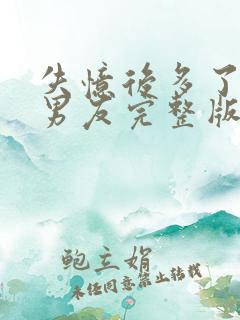 失憶後多了
男友完整版
鲍立娟
未经同意禁止转载